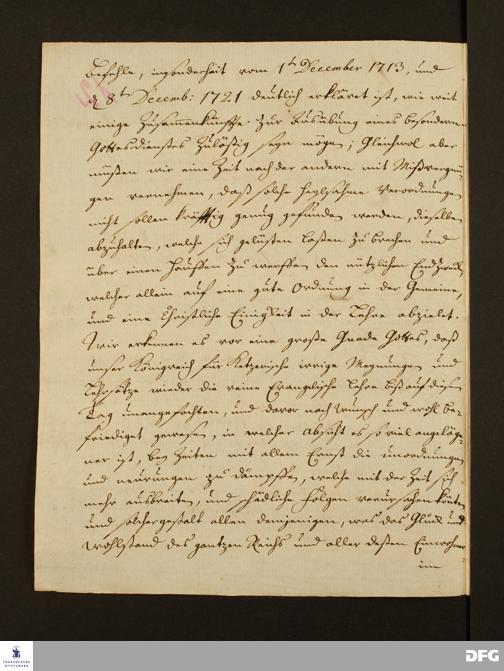 Befehle, insonderheit vom 1ᵗ December 1713, und
8ᵗ Decemb: 1721 deutlich erkläret ist, wie weit
einige Zusammenkünffte zur Ausübung eines besondern
Gottesdienstes zuläßig seyn mögen; Gleichwol aber
müßen wir eine Zeit nach der andern mit Mißvergnü
gen vernehmen, daß solche heylsahme Verordnungen
nicht sollen kräfftig genug gefunden werden, dieselben
abzuhalten, welche sich gelüsten laßen zu brechen und
über einen Hauffen zu werffen den nützlichen Endzweck,
welcher allein auf eine gute Ordnung in der Gemeine,
und eine Christliche Einigkeit in der Lehre abzielet.
Wir erkennen es vor eine große Gnade Gottes, daß
unser Königreich für Ketzerische irrige Meynungen und
Lehrsätze wieder die reine Evangelische Lehre biß auf diesen
Tag unangefochten, und davor nach Wunsch und wohl be-
friediget gewesen, in welcher Absicht es so viel angelege
ner ist, bey Zeiten mit allem Ernst die Unordnungen
und Neurungen zu dämpffen, welche mit der Zeit sich
mehr ausbreiten, und schädliche Folgen verursachen könten
und solchergestalt allen demjenigen, was das Glück und
Wohlstand des gantzen Reichs und aller deßen Einwohner
im
FRANCKESCHE
STIFTUNGEN
DFG